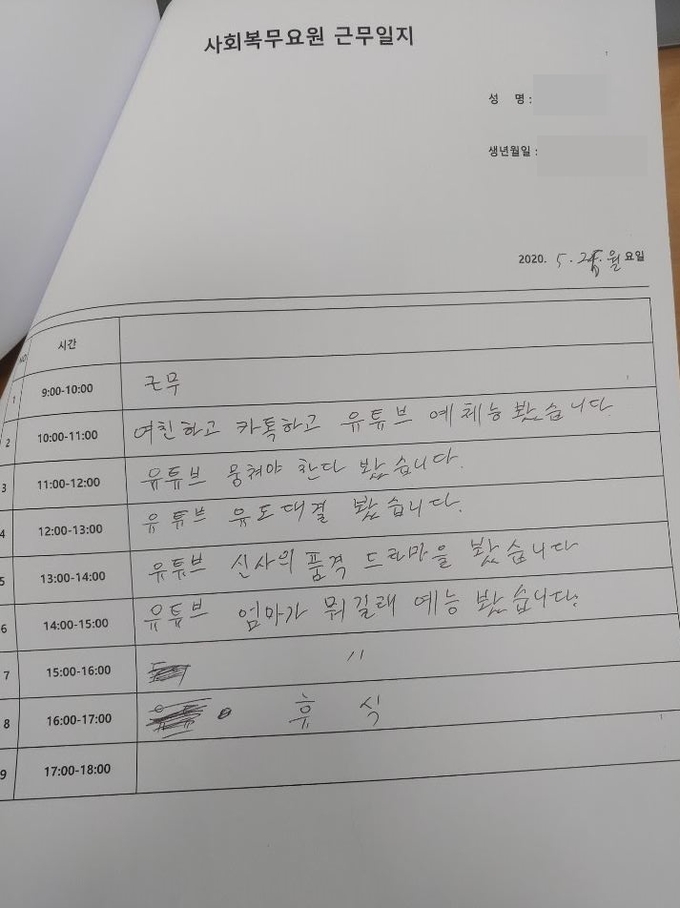 사회복무요원 근무일지
성 명 :
생년월일 :
2020. 5. 25. 월 요일
NO 시간
1 9:00-10:00 근무
2 10:00-11:00 여친하고 카톡하고 유튜브 예체능 봤습니다
3 11:00-12:00 유튜브 뭉쳐야 찬다 봤습니다.
4 12:00-13:00 유튜브 유도대결 봤습니다.
5 13:00-14:00 유튜브 신사의 품격 드라마을 봤습니다
6 14:00-15:00 유튜브 엄마가 뭐길래 예능 봤습니다.
7 15:00-16:00 〃
8 16:00-17:00 휴식
9 17:00-18:00